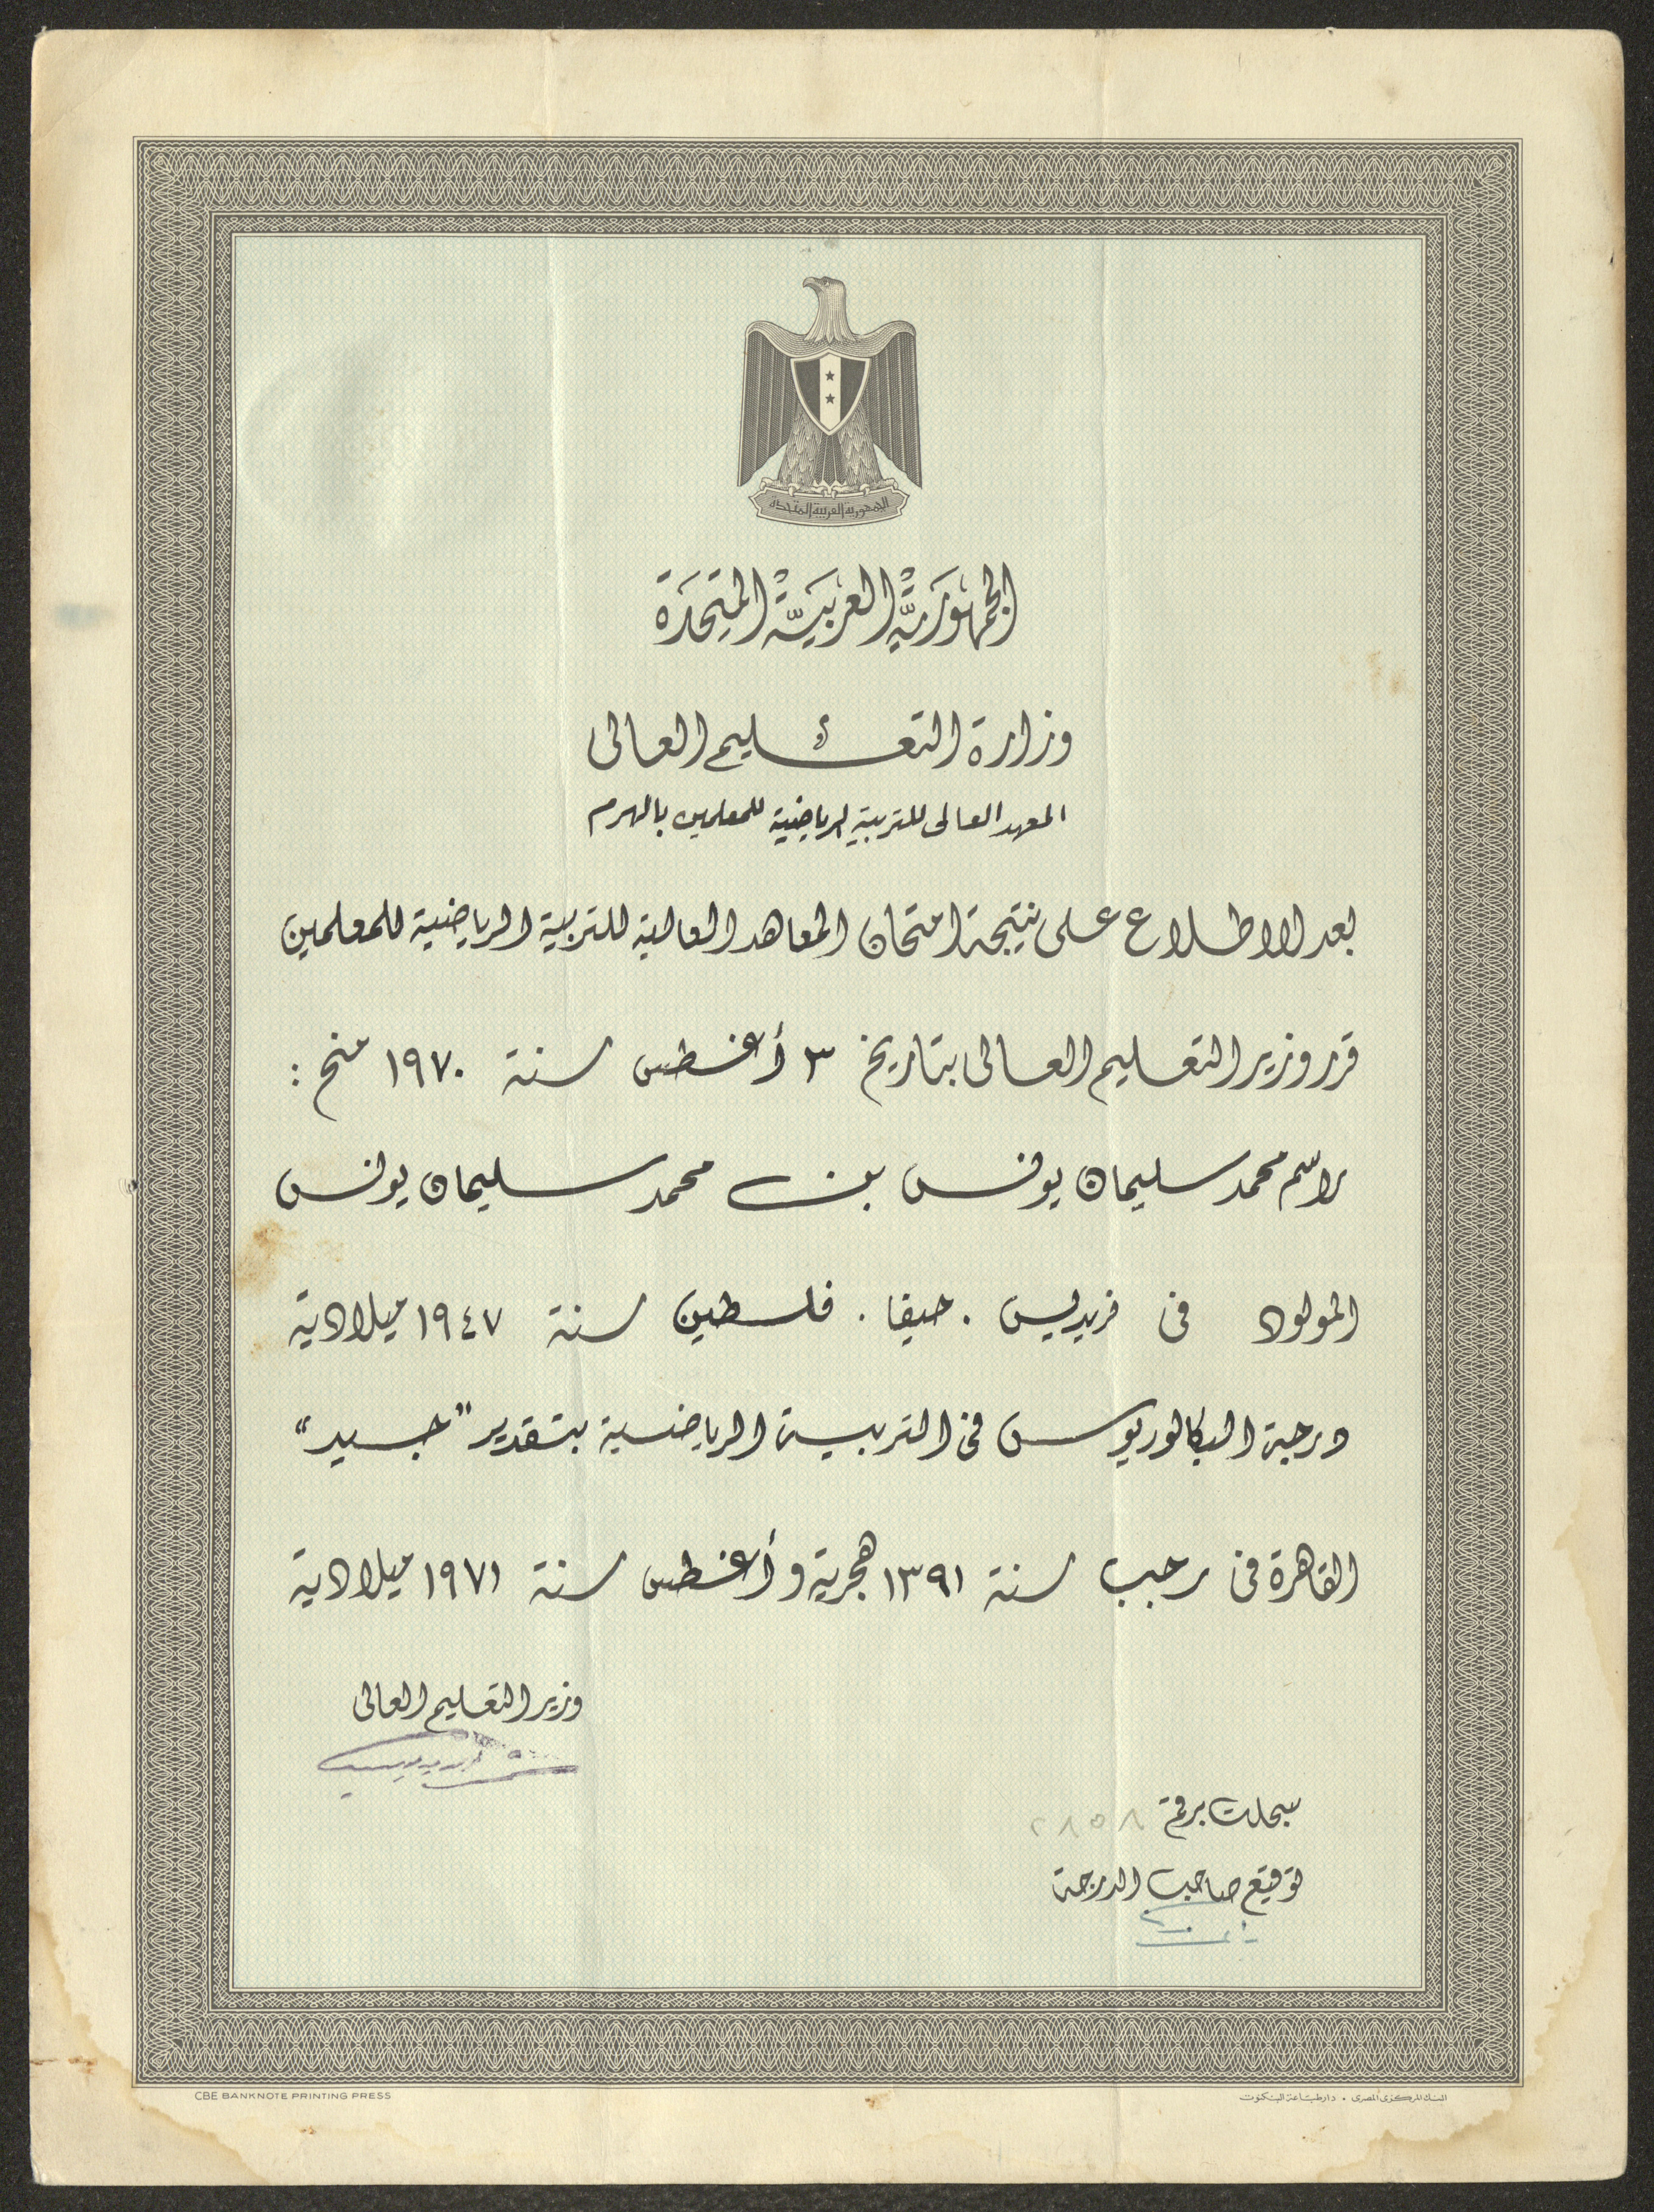 الجمهورية العربية المتحدة
الجُمهُورَيَّةُ العَربَيَّةُ المتَّحدَة
وزارة التعليم العالى
المعهد العالى للتربية الرياضية للمعلمين بالهرم
بعد الاطلاع على نتيجة امتحان المعاهد العالية للتربية الرياضية للمعلمين
قرر وزير التعليم العالى بتاريخ ٣ أغسطس سنة ١٩٧٠ منح :
راسم محمد سليمان يونس بن محمد سليمان يونس
المولود فى فريديس . حيفا . فلسطين سنة ١٩٤٧ ميلادية
درجة البكالوريوس فى التربية الرياضية بتقدير "جيد"
القاهرة فى رجب سنة ١٣٩١ هجرية و أغسطس سنة ١٩٧١ ميلادية
وزير التعليم العالى
سجلت برقم ٢٨٥٨
توقيع صاحب الدرجة
CBE BANKNOTE PRINTING PRESS
البنك المركزى المصرى . دار طباعة البنكنوت